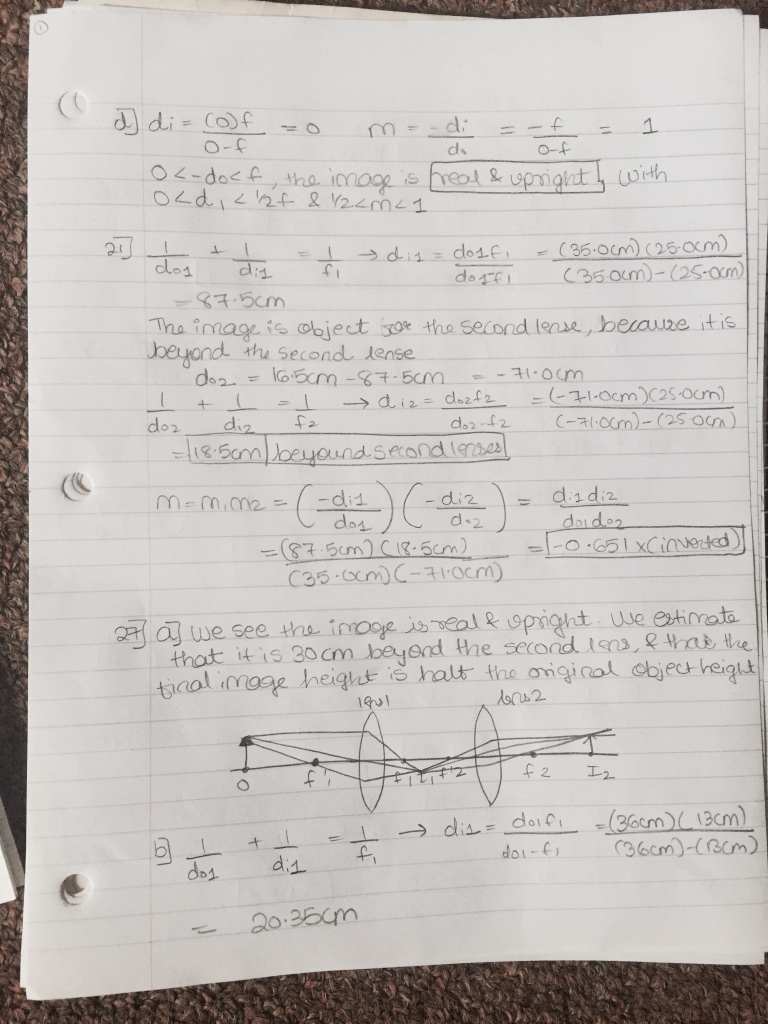 d] di = (0)f / 0-f = 0 m = -di / do = -f / 0-f = 1
0<-do<f, the image is real & upright, with
0<d1<1/2f & 1/2<m<1
21] 1/do1 + 1/di1 = 1/f1 → di1 = do1f1 / do1-f1 = (35.0cm)(25.0cm) / (35.0cm)-(25.0cm)
= 87.5cm
The image is object for the second lense, because it is
beyond the second lense
do2 = 16.5cm - 87.5cm = -71.0cm
1/do2 + 1/di2 = 1/f2 → di2 = do2f2 / do2-f2 = (-71.0cm)(25.0cm) / (-71.0cm)-(25.0cm)
= 18.5cm beyound second lenses
m = m1m2 = (-di1/do1) (-di2/do2) = di1di2 / do1do2
= (87.5cm)(18.5cm) / (35.0cm)(-71.0cm) = -0.651x(inverted)
27] a] We see the image is real & upright. We estimate
that it is 30cm beyond the second lens, & that the
final image height is half the original object height
lens1 lens2
O f'1 f1 I1 f'2 f2 I2
b] 1/do1 + 1/di1 = 1/f1 → di1 = do1f1 / do1-f1 = (36cm)(13cm) / (36cm)-(13cm)
= 20.35cm